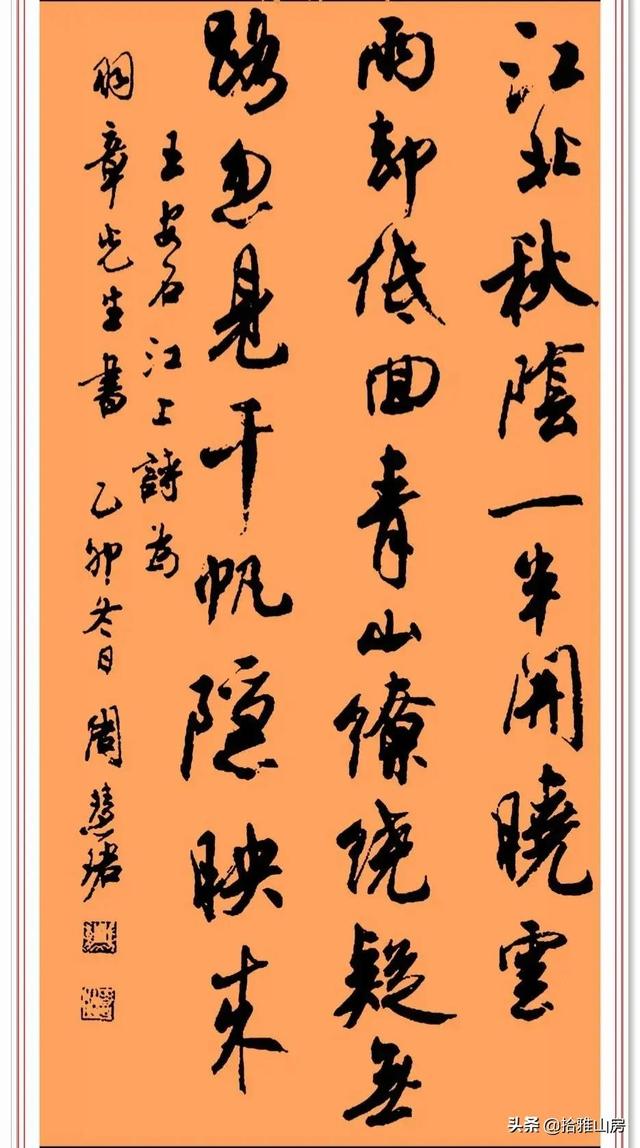 江北秋陰一半開曉雲
雨却低回青山繚绕疑無
路忽見千帆隱映来
王安石江上詩為
章先生書 乙卯冬日 周慧珺
头条 @拾雅山房